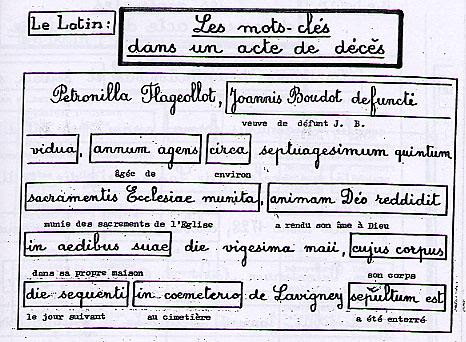 Le Latin:
Les mots-clés
dans un acte de décès
Petronilla Flageollot, Joannis Boudot defuncti
veuve de défunt J. B.
vidua, annum agens circa septuagesimum quintum
âgée de environ
sacramentis Ecclesiae munita, animam Déo reddidit
munie des sacrements de l'Eglise a rendu son âme à Dieu
in aedibus suae die vigesima maii, cujus corpus
dans sa propre maison son corps
die sequenti in coemeterio de Lavigney sepultum est
le jour suivant au cimetière a été enterré